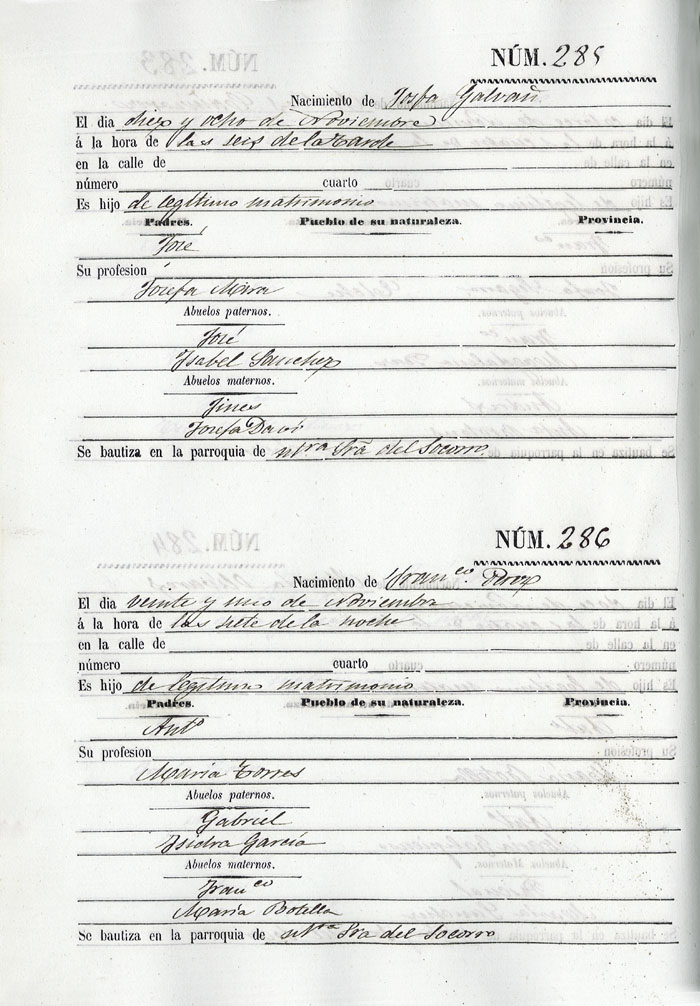 NÚM. 285
Nacimiento de Josfa Galvañ
El dia diez y ocho de Noviembre
á la hora de las seis de la tarde
en la calle de
número cuarto
Es hijo de legitimo matrimonio
Padres. Pueblo de su naturaleza. Provincia.
José
Su profesion
Josefa Mira
Abuelos paternos.
José
Ysabel Sanchez
Abuelos maternos.
Jines
Josefa Davó
Se bautiza en la parroquia de ntra Sra del Socorro
NÚM. 286
Nacimiento de Franco. Perez
El dia veinte y uno de Noviembre
á la hora de las siete de la noche
en la calle de
número cuarto
Es hijo de legitimo matrimonio
Padres. Pueblo de su naturaleza. Provincia.
Anto
Su profesion
Maria Torres
Abuelos paternos.
Gabriel
Isidra García
Abuelos maternos.
Franco
María Botella
Se bautiza en la parroquia de ntra Sra del Socorro